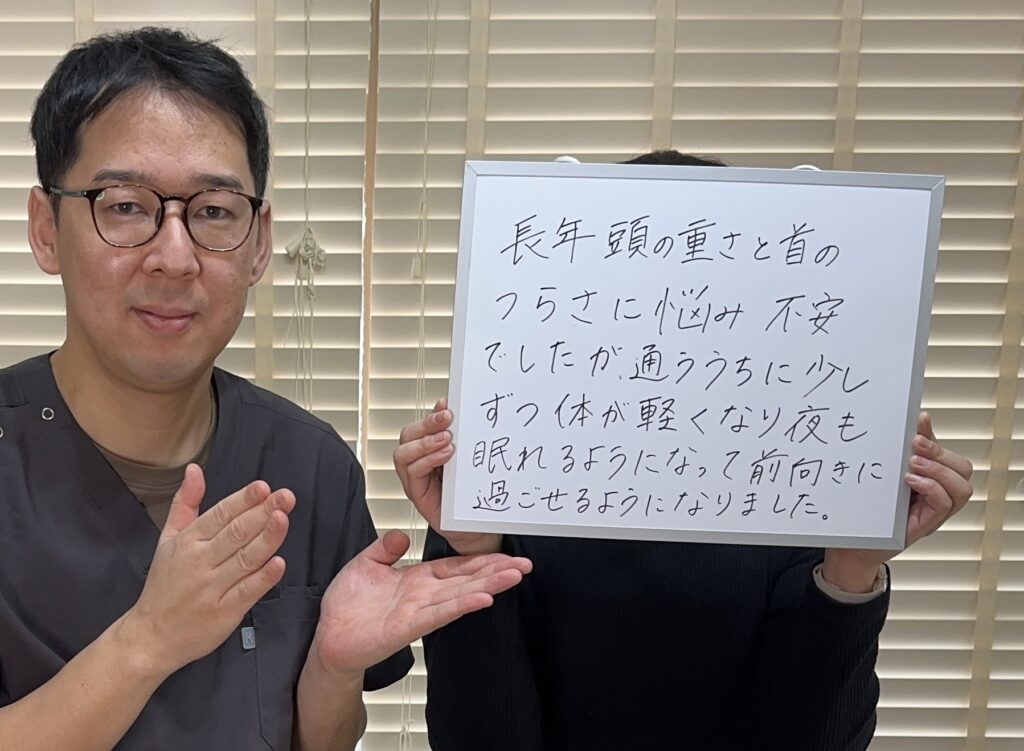 長年 頭の重さと首の
つらさに悩み 不安
でしたが、通ううちに少し
ずつ体が軽くなり夜も
眠れるようになって前向きに
過ごせるようになりました。